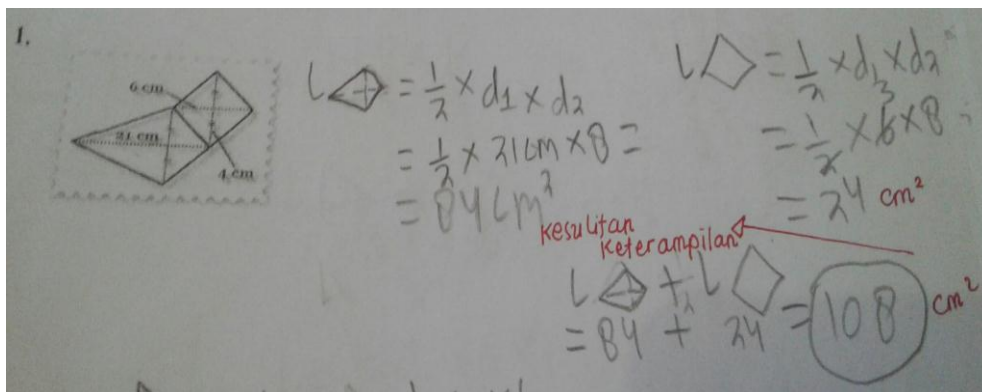 1.
6 cm
21 cm
4 cm
L = 1/2 × d1 × d2
= 1/2 × 21 cm × 8 =
= 84 cm²
L = 1/2 × d1 × d2
3
= 1/2 × 6 × 8
= 24 cm²
Kesulitan
Keterampilan
L + L = 108 cm²
= 84 + 24